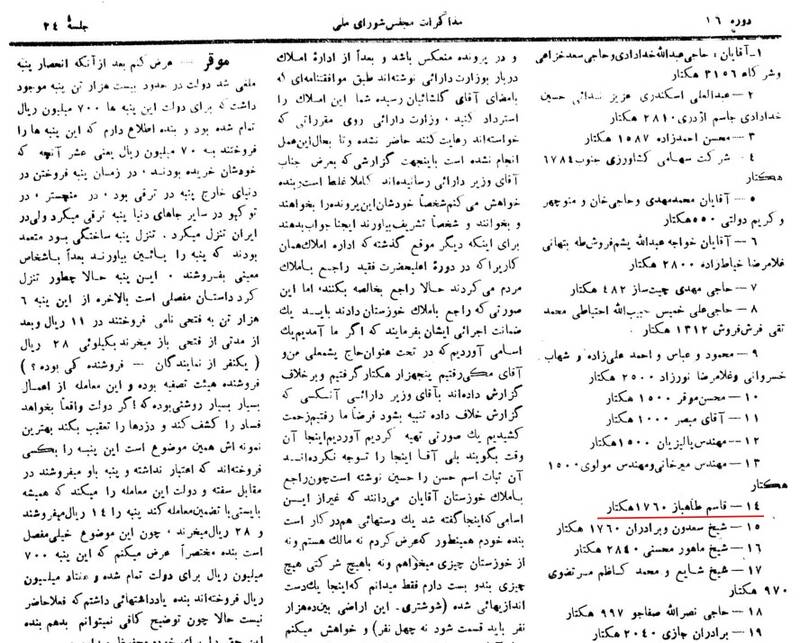 دوره ۱۶
مذاکرات مجلس شورای ملی
جلسهٔ ۲۴
۱- آقایان: حاجی عبدالله خدادادی وحاجی سعدخزاهی
وشرکاه ۳۱۵۶ هکتار
۲ - عبدالعلی اسکندری عزیز ندائی حسین
خدادادی جاسم اژدری ۲۸۱۰ هکتار
۳ - محسن احمدزاده ۱۵۸۷ هکتار
۴ - شرکت سهامی کشاورزی جنوب ۱۷۸۴
هکتار
۵ - آقایان محمدمهدی وحاجی خان و منوچهر
و کریم دولتی ۵۵۰ هکتار
۶ - آقایان خواجه عبدالله پشم فروش طه بتهانی
غلامرضا خیاط زاده ۲۸۰۰ هکتار
۷ - حاجی مهدی چیت‌ساز ۴۸۲ هکتار
۸ - حاجی علی خمیس حبیب‌الله احتیاطی محمد
تقی فرش‌فروش ۱۳۱۲ هکتار
۹ - محمود و عباس و احمد علی‌زاده و شهاب
خسروانی وغلامرضا نورزاد ۲۵۰۰ هکتار
۱۰ - محسن موقر ۱۵۰۰ هکتار
۱۱ - آقای میصر ۱۰۰۰ هکتار
۱۲ - مهندس بالیزیان ۱۵۰۰ هکتار
۱۳ - مهندس میرخانی ومهندس مولوی ۱۵۰۰
هکتار
۱۴ - قاسم طاهباز ۱۷۶۰ هکتار
۱۵ - شیخ سعدون وبرادران ۱۷۶۰ هکتار
۱۶ - شیخ ماهور محسنی ۲۸۴۰ هکتار
۱۷ - شیخ شایع و محمد کاظم مرتضوی
۹۷۰ هکتار
۱۸ - حاجی نصرالله صفاجو ۹۹۷ هکتار
۱۹ - برادران جازی ۲۰۴۰ هکتار
و در پرونده منعکس باشد و بعداً از ادارهٔ املاک
دربار بوزارت دارائی نوشته‌اند طبق موافقتنامه‌ای که
بامضای آقای گلشائیان رسیده شما این املاک را
استرداد کنید، وزارت دارائی روی مقرراتی که
خواسته‌اند رعایت کنند حاضر نشده وتا بحال این عمل
انجام نشده است باینجهت گزارشی که بعرض جناب
آقای وزیر دارائی رسانیده‌اند کاملا غلط است بنده
خواهش می‌کنم شخصاً خودشان این پرونده را بخواهند
و بخوانند و شخصاً تشریف بیاورند اینجا جواب بدهند
برای اینکه دیگر موقع گذشته که اداره املاک همان
کاریرا که در دورهٔ اعلیحضرت فقید راجع باملاک
مردم می‌کردند حالا راجع بخالصه بکنند، اما این
صورتی که راجع باملاک خوزستان دادند باید یک
ضمانت اجرائی ایشان بفرمایند که اگر ما آمدیم یک
اسامی آوردیم که در تحت عنوان حاج پشمعلی من و
آقای مکی رفتیم پنجهزار هکتار گرفتیم وبرخلاف
گزارش داده‌اند بآقای وزیر دارائی آنکسی که
گزارش خلاف داده تنبیه بشود فرضاً ما رفتیم زحمت
کشیدیم یک صورتی تهیه کردیم آوردیم اینجا آن
وقت بگویند بلی آقا اینجا را توجه نکرده‌اند
آن ثبات اسم حسن را حسین نوشته است چون راجع
باملاک خوزستان آقایان می‌دانند که غیر از این
اسامی که اینجا گفته شد یک دستهائی هم در کار است
بنده خودم همینطور که عرض کردم نه مالک هستم ونه
از خوزستان چیزی میخواهم ونه باهیچ شرکتی هیچ
چیزی بندو بست دارم فقط میدانم که اینجا یک دست
اندازیهائی شده (شوشتری - این اراضی بین ده هزار
نفر باید قسمت شود نه چهل نفر) و خواهش میکنم
موقر - عرض کنم بعد از آنکه انحصار پنبه
ملغی شد دولت در حدود بیست هزار تن پنبه موجود
داشت که برای دولت این پنبه ها ۷۰۰ میلیون ریال
تمام شده بود و بنده اطلاع دارم که این پنبه ها را
فروختند به ۷۰ میلیون ریال یعنی عشر آنچه که
خودشان خریده بودند، در زمان پنبه فروختن در
دنیای خارج پنبه در ترقی بود، در منچستر، در
توکیو در سایر جاهای دنیا پنبه ترقی میکرد ولی در
ایران تنزل میکرد، تنزل پنبه ساختگی بود متعمد
بودند که پنبه را پائین بیاورند بعداً باشخاص
معینی بفروشند، این پنبه حالا چطور تنزل
کرد داستان مفصلی است بالاخره از این پنبه ۶
هزار تن به فتحی نامی فروختند در ۱۱ ریال وبعد
از مدتی از فتحی باز میخرند بکیلوئی ۲۸ ریال
(یکنفر از نمایندگان - فروشنده کی بوده؟)
فروشنده هیئت تصفیه بوده و این معامله از اعمال
بسیار بسیار روشنی بوده که اگر دولت واقعاً بخواهد
فساد را کشف کند و دزدها را تعقیب بکند بهترین
نمونه اش همین موضوع است این پنبه را بکسی
فروخته‌اند که اعتبار نداشته و پنبه باو میفروشند در
مقابل سفته و دولت این معامله را میکند که همیشه
بایستی با تضمین معامله کند پنبه را ۱۴ ریال میفروشند
و ۲۸ ریال میخرند، چون این موضوع خیلی مفصل
است بنده مختصراً عرض میکنم که این پنبه ۷۰۰
میلیون ریال برای دولت تمام شده و هفتاد میلیون
ریال فروخته‌اند بنده یادداشتهائی داشتم که فعلا حاضر
نیست حالا چون توضیح کافی نمیتوانم بدهم بنده